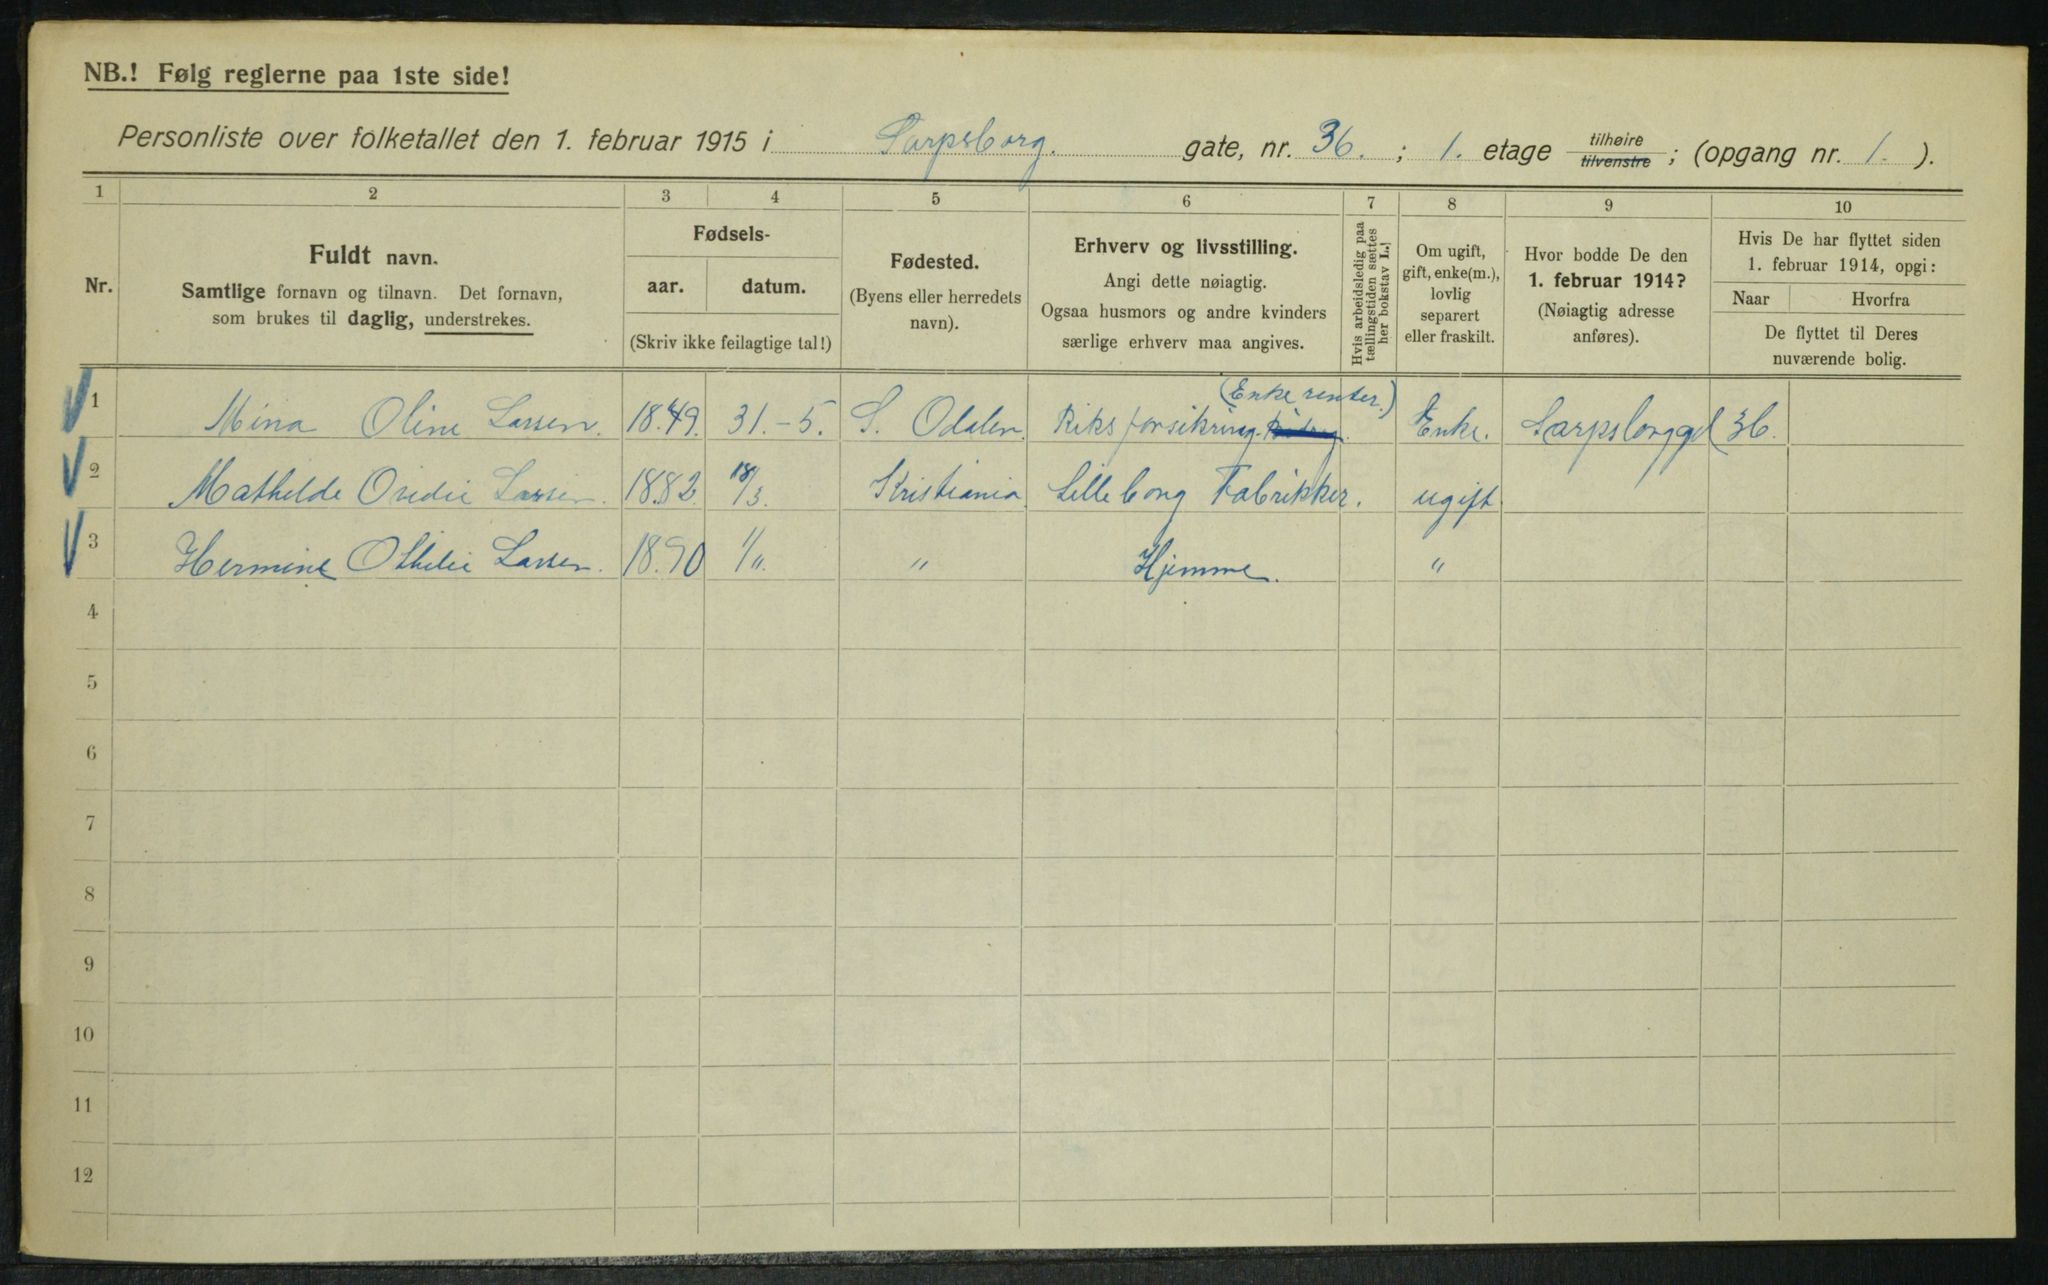 NB.! Følg reglerne paa 1ste side!
Personliste over folketallet den 1. februar 1915 i Sarpsborg. gate, nr. 36. ; 1. etage tilhøire tilvenstre ; (opgang nr. 1. ).
1 2 3 4 5 6 7 8 9 10
Nr.
Fuldt navn.
Samtlige fornavn og tilnavn. Det fornavn,
som brukes til daglig, understrekes.
Fødsels-
aar. datum.
(Skriv ikke feilagtige tal!)
Fødested.
(Byens eller herredets
navn).
Erhverv og livsstilling.
Angi dette nøiagtig.
Ogsaa husmors og andre kvinders
særlige erhverv maa angives.
Hvis arbeidsledig paa
tællingstiden sættes
her bokstav L.!
Om ugift,
gift, enke(m.),
lovlig
separert
eller fraskilt.
Hvor bodde De den
1. februar 1914?
(Nøiagtig adresse
anføres).
Hvis De har flyttet siden
1. februar 1914, opgi:
Naar Hvorfra
De flyttet til Deres
nuværende bolig.
(Enke renter.)
1 Mina Oline Larsen. 1849. 31.-5. S. Odalen. Riksforsikring. Enke. Sarpsborggt 36.
2 Mathilde Ovidie Larsen. 1882. 18/3. Kristiania Lilleborg Fabrikker. ugift.
3 Hermine Othilie Larsen. 1890 1/11. " Hjemme. "
4
5
6
7
8
9
10
11
12